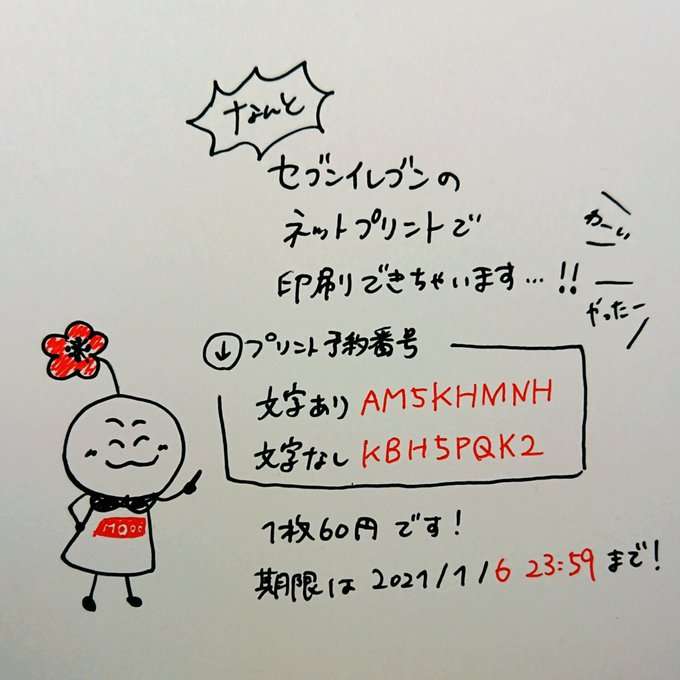 なんと
セブンイレブンの
ネットプリントで
印刷できちゃいます…!!
わーい
やったー
↓プリント予約番号
文字あり AM5KHMNH
文字なし KBH5PQK2
1枚60円です!
期限は 2021/1/6 23:59 まで!